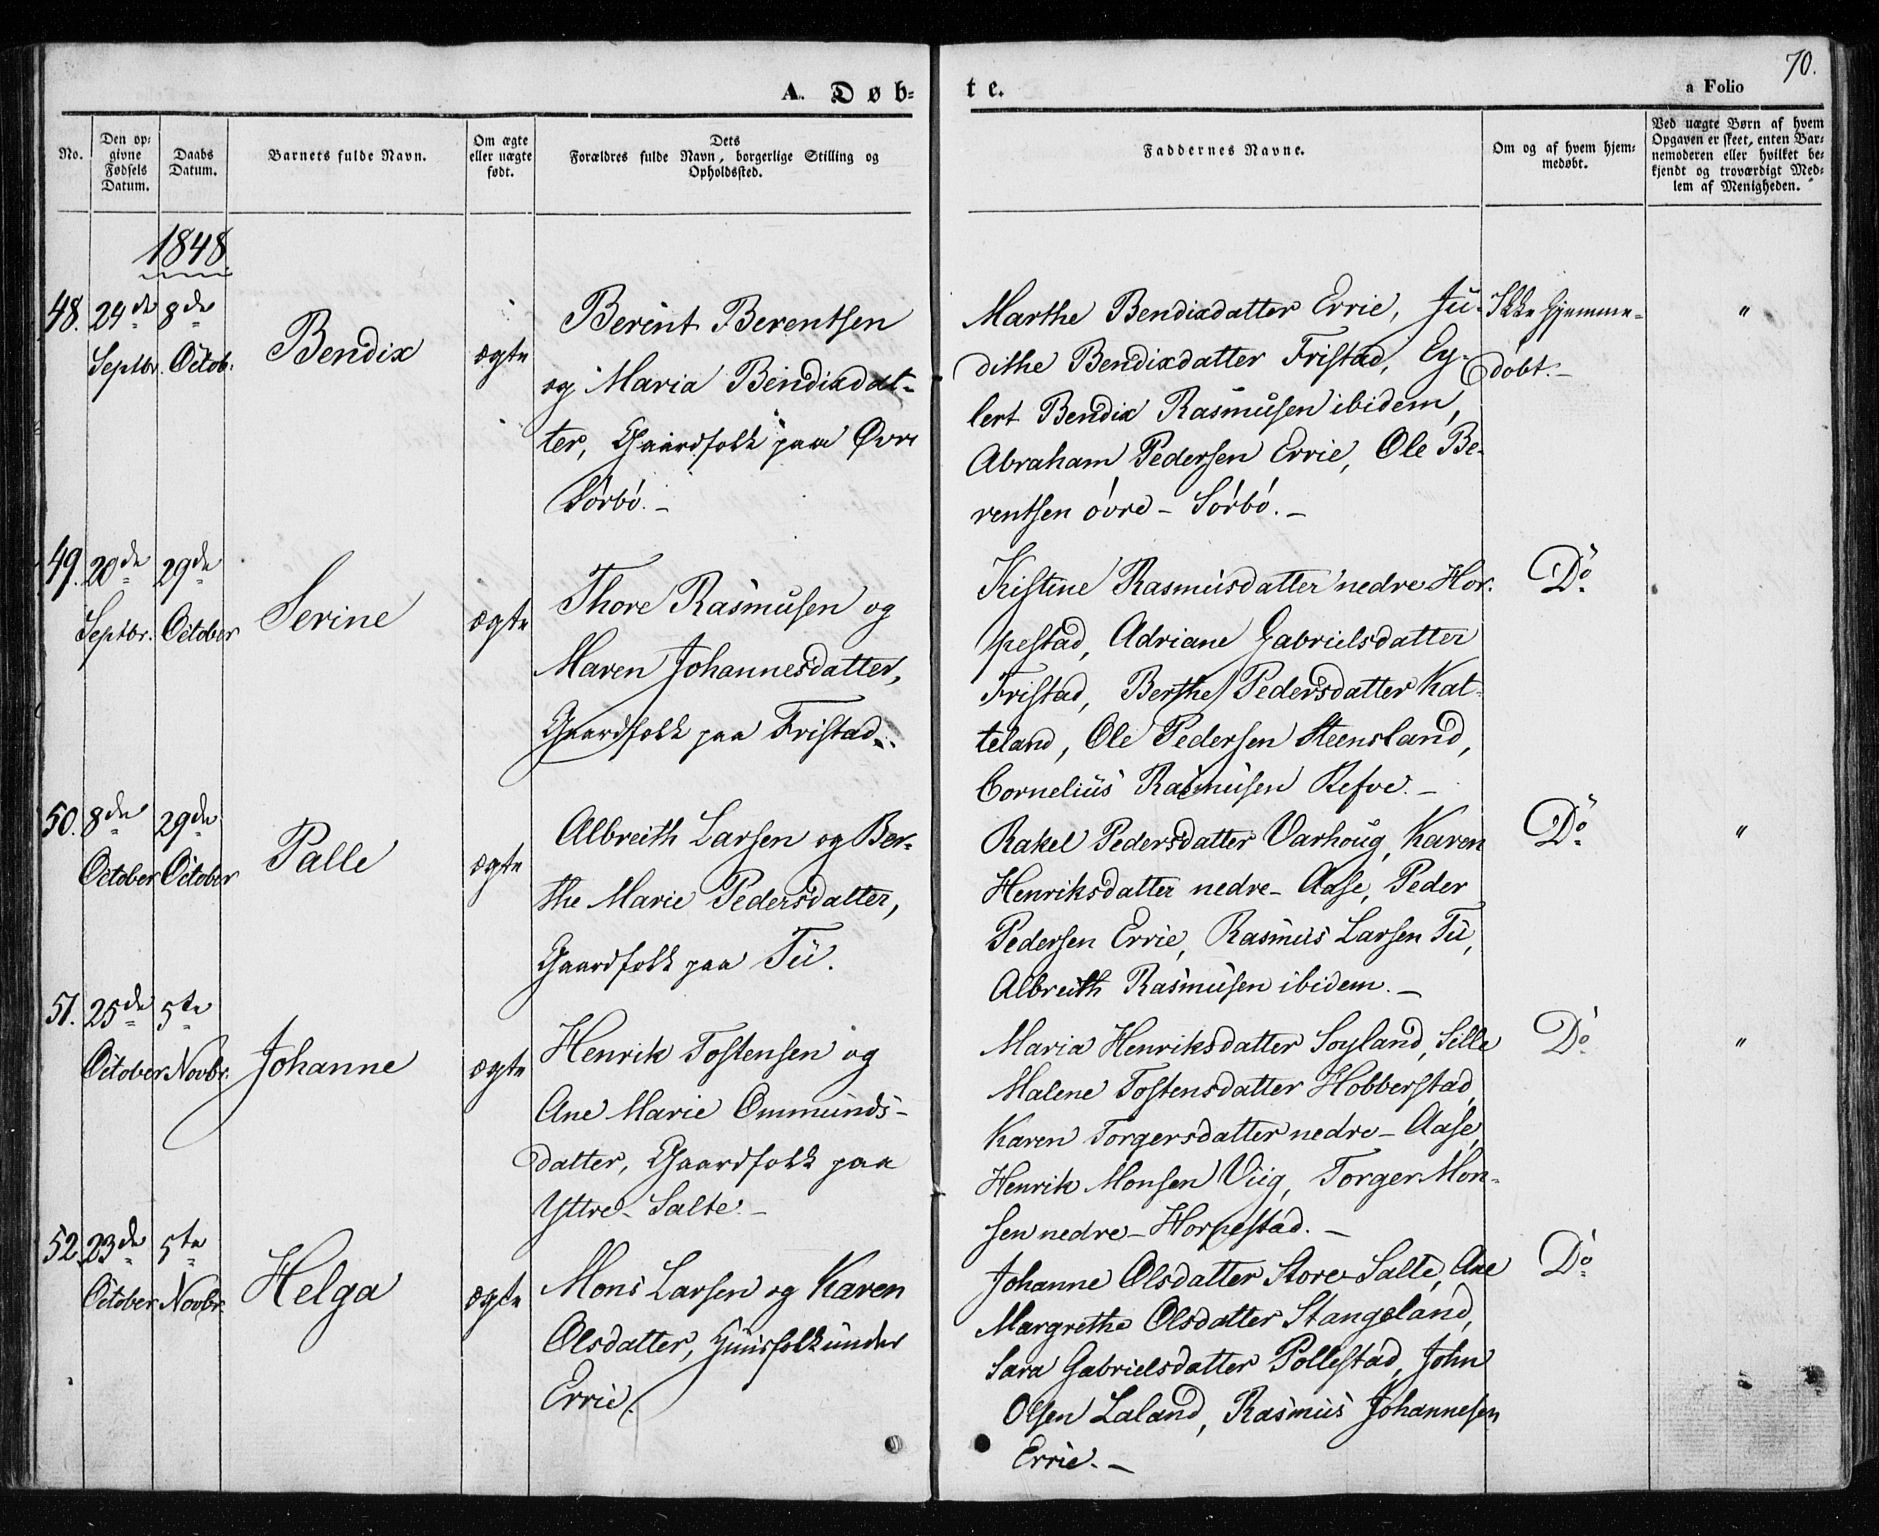 70.
A. Døb-
te.
a Folio
No.
Den op-
givne
Fødsels
Datum.
Daabs
Datum.
Barnets fulde Navn.
Om ægte
eller uægte
født.
Dets
Forældres fulde Navn, borgerlige Stilling og
Opholdssted.
Faddernes Navne.
Om og af hvem hjem-
medøbt.
Ved uægte Børn af hvem
Opgaven er skeet, enten Bar-
nemoderen eller hvilket be-
kjendt og troværdigt Med-
lem af Menigheden.
1848.
48.
24de
Septbr.
8de
Octob.
Bendix
ægte
Berint Berentsen
og Maria Bendixdat-
ter, Gaardfolk paa Øvre
Sørbø. –
Marthe Bendixdatter Errie, Ju-
dithe Bendixdatter Fristad, Ey-
lert Bendix Rasmusen ibidem,
Abraham Pedersen Errie, Ole Be-
rentsen øvre – Sørbø. –
Ikke hjemme-
døbt. –
"
49.
20de
Septbr.
29de
October
Serine
ægte
Thore Rasmusen og
Maren Johannesdatter,
Gaardfolk paa Fristad.
Kistine Rasmusdatter nedre Hor-
pestad, Adriane Gabrielsdatter
Fristad, Berthe Pedersdatter Kat-
teland, Ole Pedersen Steensland,
Cornelius Rasmusen Refve. –
Do
50.
8de
October
29de
October
Palle
ægte
Albreith Larsen og Ber-
the Marie Pedersdatter,
Gaardfolk paa Tu.
Rakel Pedersdatter Varhoug, Karen
Henriksdatter nedre – Aase, Peder
Pedersen Errie, Rasmus Larsen Tu,
Albreith Rasmusen ibidem. –
Do
"
51.
25de
October
5te
Novbr.
Johanne
ægte
Henrik Tostensen og
Ane Marie Ommunds-
datter, Gaardfolk paa
Yttre – Salte. –
Maria Henriksdatter Soyland, Sille
Malene Tostensdatter Hobberstad,
Karen Torgersdatter nedre – Aase,
Henrik Monsen Viig, Torger Mon-
sen nedre – Horpestad. –
Do
"
52.
23de
October
5te
Novbr.
Helga
ægte
Mons Larsen og Karen
Olsdatter, Huusfolk under
Errie.
Johanne Olsdatter Store Salte, Ane
Margrethe Olsdatter Stangeland,
Sara Gabrielsdatter Pollestad, John
Olsen Laland, Rasmus Johannesen
Errie. –
Do